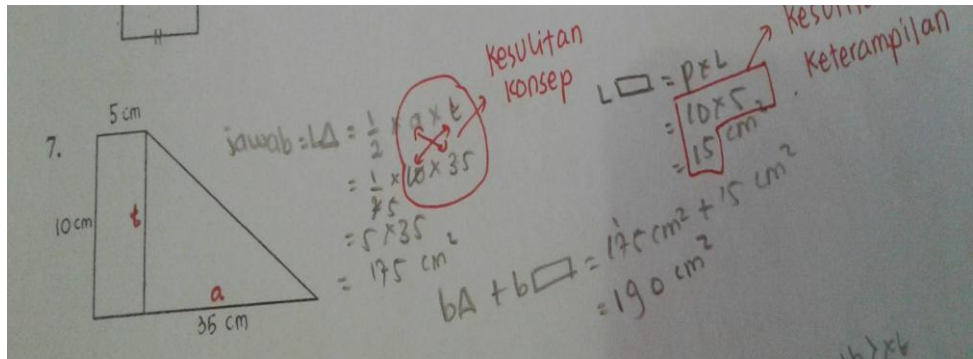 5 cm
7.
10 cm
t
a
35 cm
jawab = L△ = 1/2 × a × t
= 1/2 × 10 × 35
5
= 5 × 35
= 175 cm²
Kesulitan
Konsep
L▭ = P × L
= 10 × 5
= 15 cm²
Keterampilan
b△ + b▭ = 175 cm² + 15 cm²
= 190 cm²